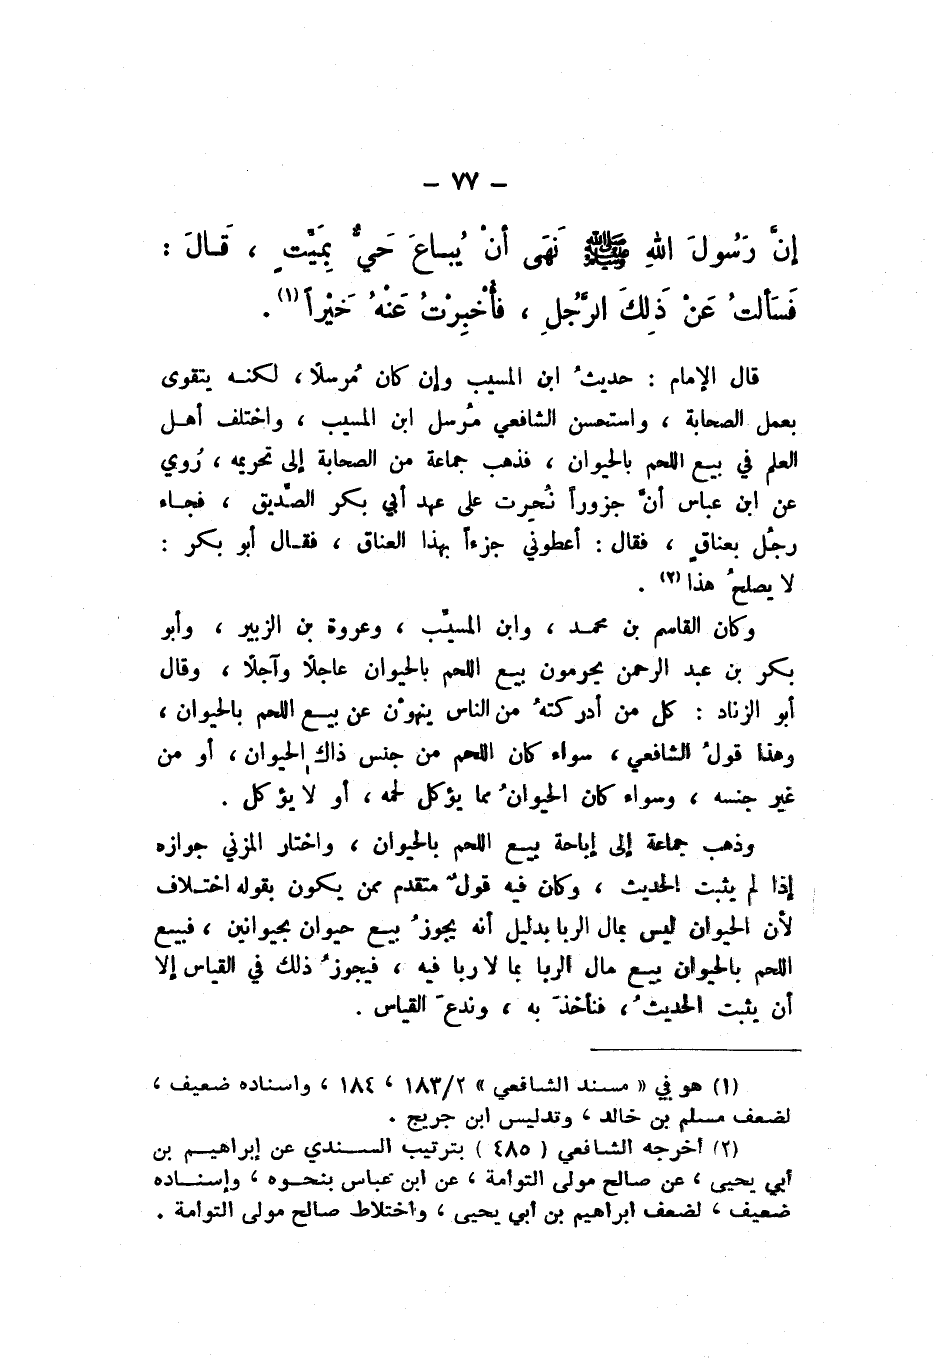 – ٧٧ –
إِنَّ رَسُولَ اللهِ ﷺ نَهَى أَنْ يُبَاعَ حَيٌّ بِمَيِّتٍ ، قَالَ :
فَسَأَلتُ عَنْ ذَلِكَ الرَّجُلِ ، فَأُخْبِرْتُ عَنْهُ خَيْراً (١) .
قال الإمام : حديثُ ابن المسيب وإن كان مُرسلًا ، لكنه يتقوى
بعمل الصحابة ، واستحسن الشافعي مُرسل ابن المسيب ، واختلف أهل
العلم في بيع اللحم بالحيوان ، فذهب جماعة من الصحابة إلى تحريمه ، رُوي
عن ابن عباس أنَّ جزوراً نُحِرت على عهد أبي بكر الصِّديق ، فجاء
رجُل بعناقٍ ، فقال : أعطوني جزءاً بهذا العناق ، فقال أبو بكر :
لا يصلحُ هذا (٢) .
وكان القاسم بن محمد ، وابن المسيِّب ، وعروة بن الزبير ، وأبو
بكر بن عبد الرحمن يحرمون بيع اللحم بالحيوان عاجلًا وآجلًا ، وقال
أبو الزناد : كل من أدركتهُ من الناس ينهوْن عن بيع اللحم بالحيوان ،
وهذا قولُ الشافعي ، سواء كان اللحم من جنس ذاك الحيوان ، أو من
غير جنسه ، وسواء كان الحيوانُ مما يؤكل لحمه ، أو لا يؤكل .
وذهب جماعة إلى إباحة بيع اللحم بالحيوان ، واختار المزني جوازه
إذا لم يثبت الحديث ، وكان فيه قولٌ متقدم ممن يكون بقوله اختلاف
لأن الحيوان ليس بمال الربا بدليل أنه يجوزُ بيع حيوان بحيوانين ، فبيع
اللحم بالحيوان بيع مال الربا بما لا ربا فيه ، فيجوزُ ذلك في القياس إلا
أن يثبت الحديثُ ، فنأخذَ به ، وندعَ القياس .
(١) هو في « مسند الشافعي » ١٨٣/٢ ، ١٨٤ ، واسناده ضعيف ،
لضعف مسلم بن خالد ، وتدليس ابن جريج .
(٢) أخرجه الشافعي ( ٤٨٥ ) بترتيب السندي عن إبراهيم بن
أبي يحيى ، عن صالح مولى التوامة ، عن ابن عباس بنحوه ، وإسناده
ضعيف ، لضعف ابراهيم بن أبي يحيى ، واختلاط صالح مولى التوامة .